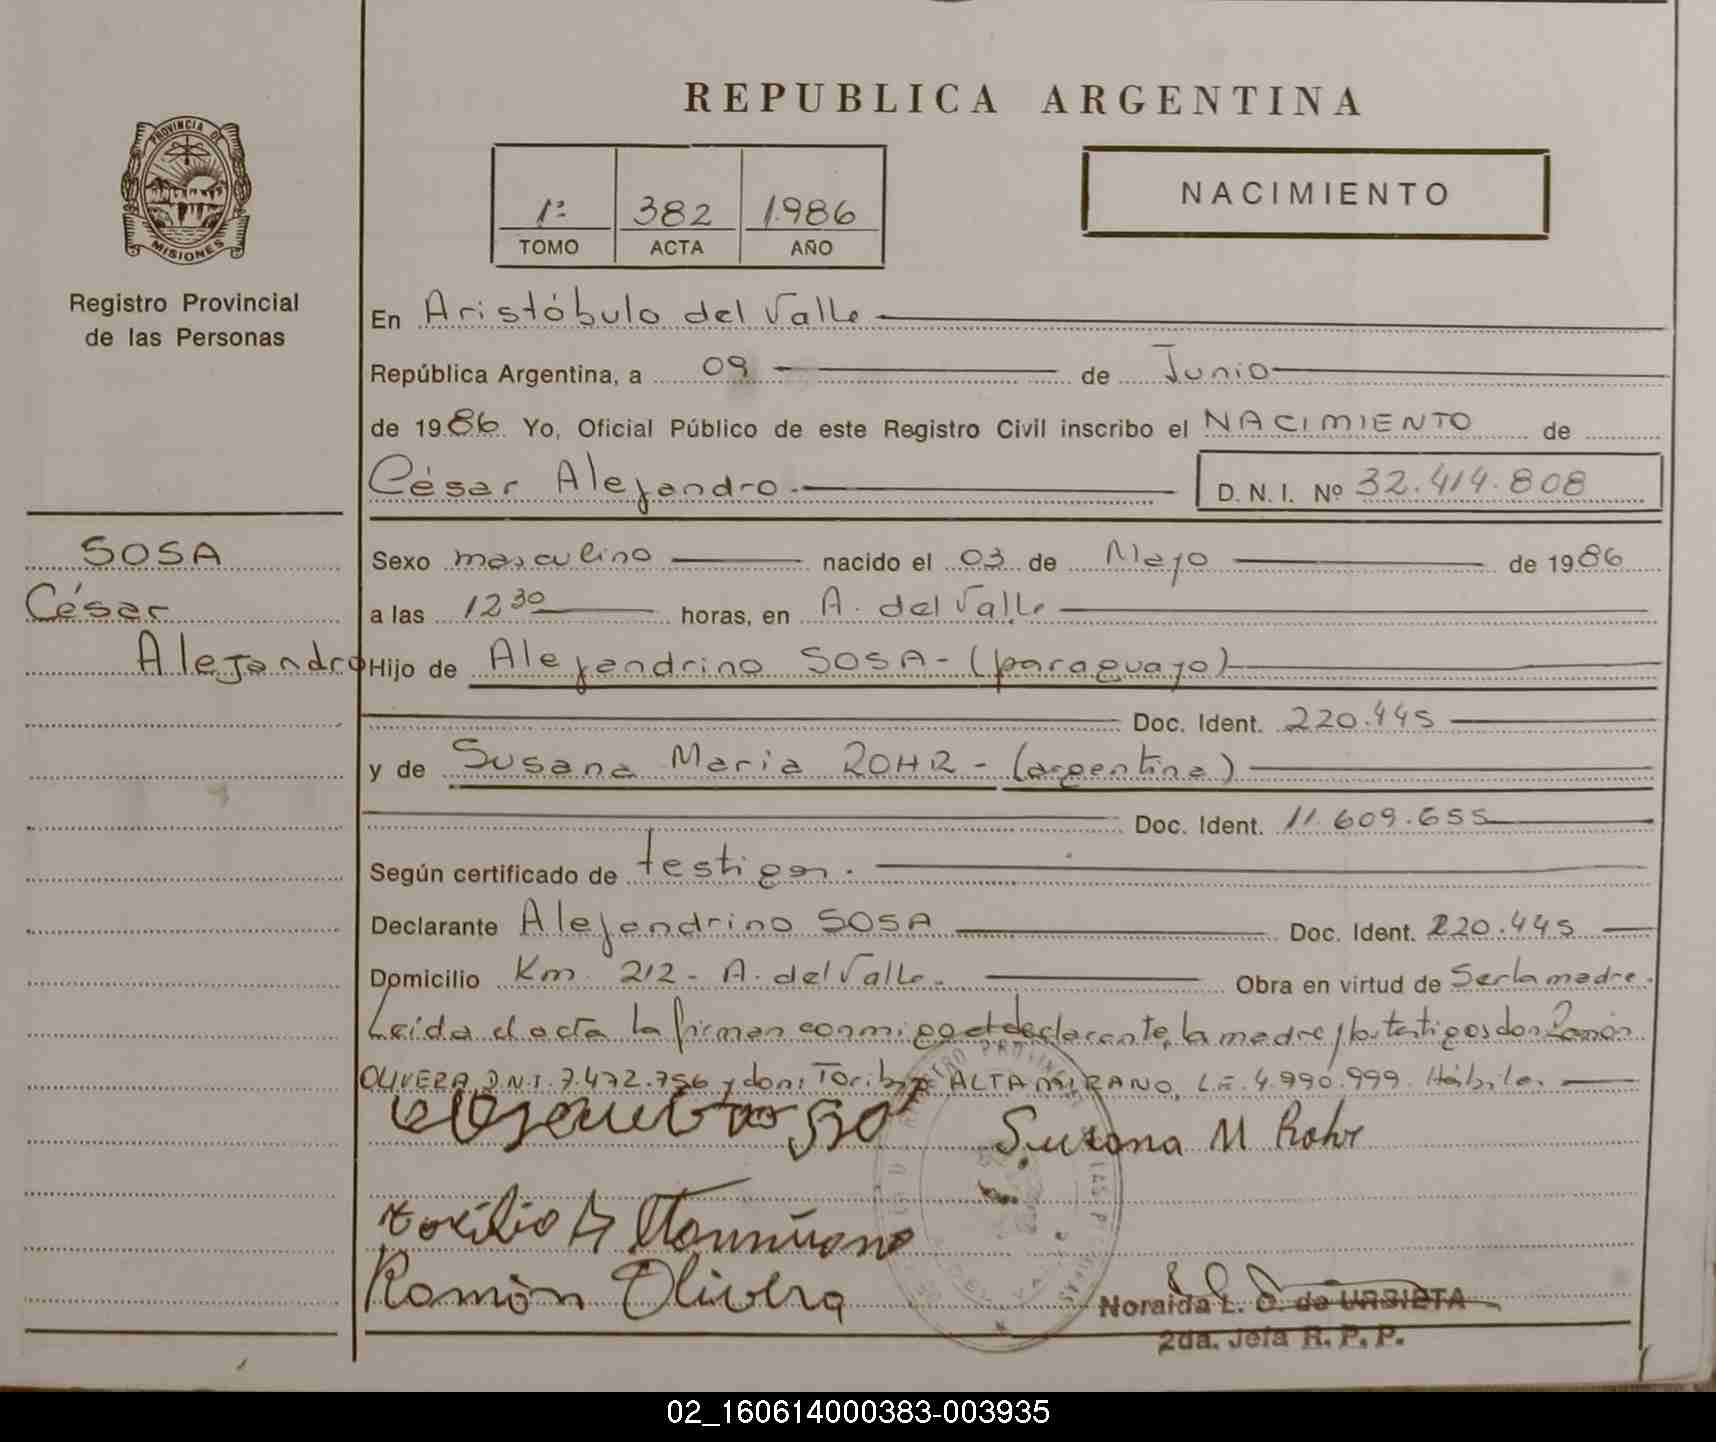 REPUBLICA ARGENTINA
PROVINCIA DE
MISIONES
1º 382 1986
TOMO ACTA AÑO
NACIMIENTO
Registro Provincial
de las Personas
En Aristóbulo del Valle
República Argentina, a 09 de Junio
de 1986 Yo, Oficial Público de este Registro Civil inscribo el NACIMIENTO de
César Alejandro.
D. N. I. Nº 32.414.808
SOSA
César
Alejandro
Sexo masculino nacido el 03 de Mayo de 1986
a las 12 30 horas, en A. del Valle
Hijo de Alejandrino SOSA - (paraguayo)
Doc. Ident. 220.445
y de Susana Maria ROHR - (argentina)
Doc. Ident. 11.609.655
Según certificado de testigos.
Declarante Alejandrino SOSA Doc. Ident. 220.445
Domicilio Km. 212 - A. del Valle. Obra en virtud de Ser la madre.
Leída el acta la firman conmigo el declarante, la madre y los testigos don Ramón
OLIVERA, D.N.I. 7.472.756 y don: Toribio ALTAMIRANO, L.E. 4.990.999. Hábiles.
Susana M Rohr
Ramòn Olivera
Noraida L. O. de URBIETA
2da. Jefa R. P. P.
02_160614000383-003935